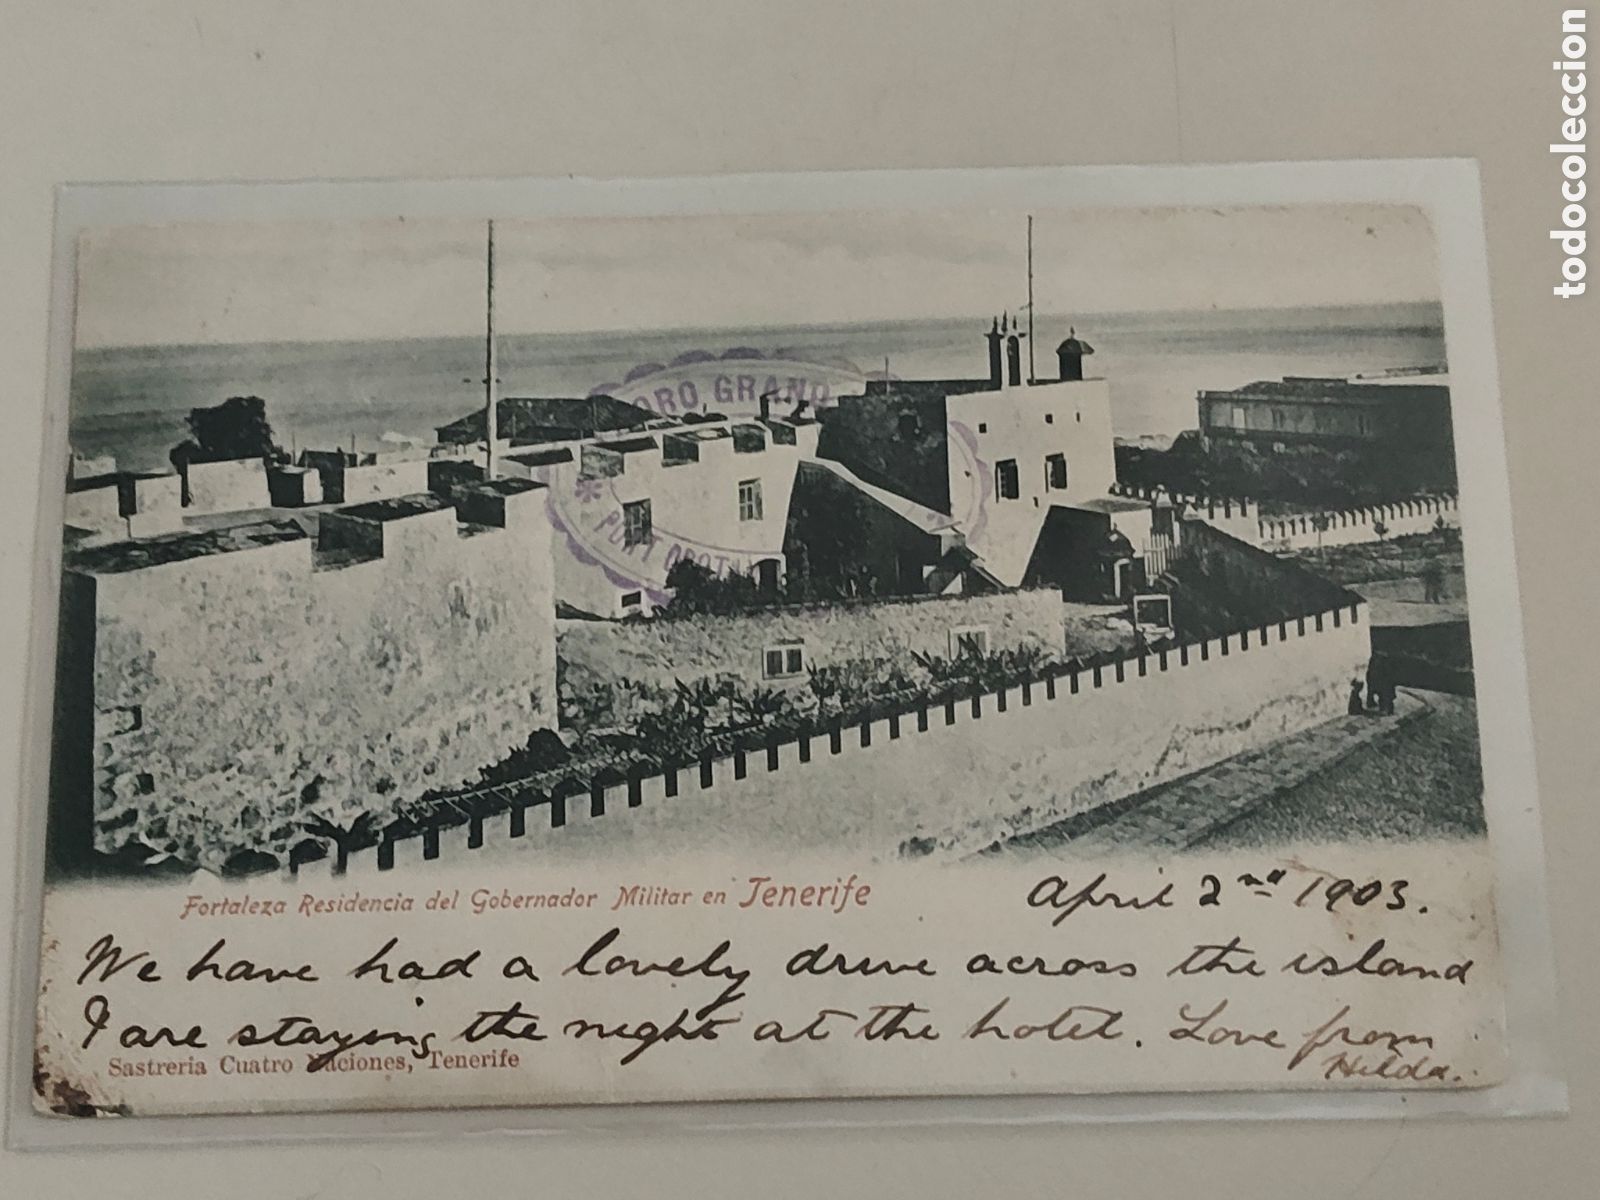 todocoleccion
ORO, GRAND
* PORT OROTA
Fortaleza Residencia del Gobernador Militar en Tenerife
April 2nd 1903.
We have had a lovely drive across the island
& are staying the night at the hotel. Love from
Hilda.
Sastreria Cuatro Naciones, Tenerife